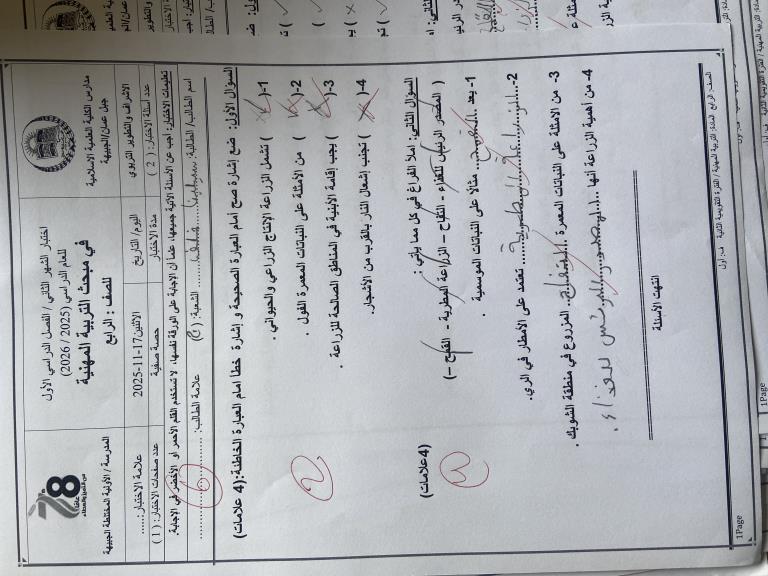 مدارس الكلية العلمية الاسلامية
جبل عمان/الجبيهة
اختبار الشهر الثاني / الفصل الدراسي الأول
للعام الدراسي (2025 / 2026)
في مبحث التربية المهنية
للصف : الرابع
78
المدرسة / الأولية المختلطة الجبيهة
الاشراف والتطوير التربوي
اليوم/ التاريخ
الاثنين17-11-2025
علامة الاختبار:......
عدد أسئلة الاختبار: ( 2 )
مدة الاختبار
حصة صفية
عدد صفحات الاختبار: ( 1 )
تعليمات الاختبار: أجب عن الأسئلة الآتية جميعها، علما ان الإجابة على الورقة نفسها، لا تستخدم القلم الأحمر أو الأخضر في الاجابة.
اسم الطالب/ الطالبة: الشعبة: ( ) علامة الطالب:
6
السؤال الأول: ضع إشارة صح أمام العبارة الصحيحة و إشارة خطا امام العبارة الخاطئة:(4 علامات)
1-( ) تشمل الزراعة الإنتاج الزراعي والحيواني .
2-( ) من الأمثلة على النباتات المعمرة الفول .
3-( ) يجب إقامة الأبنية في المناطق الصالحة للزراعة .
4-( ) تجنب إشعال النار بالقرب من الأشجار.
السؤال الثاني: املأ الفراغ في كل مما يأتي : (4علامات)
( المصدر الرئيس للغذاء - التفاح – الزراعة المطرية - القمح –)
1- يعد القمح مثالا على النباتات الموسمية .
2- الزراعة المطرية تعتمد على الأمطار في الري.
3- من الامثلة على النباتات المعمرة التفاح المزروع في منطقة الشوبك .
4- من أهمية الزراعة أنها المصدر الرئيس للغذاء .
انتهت الأسئلة
1Page